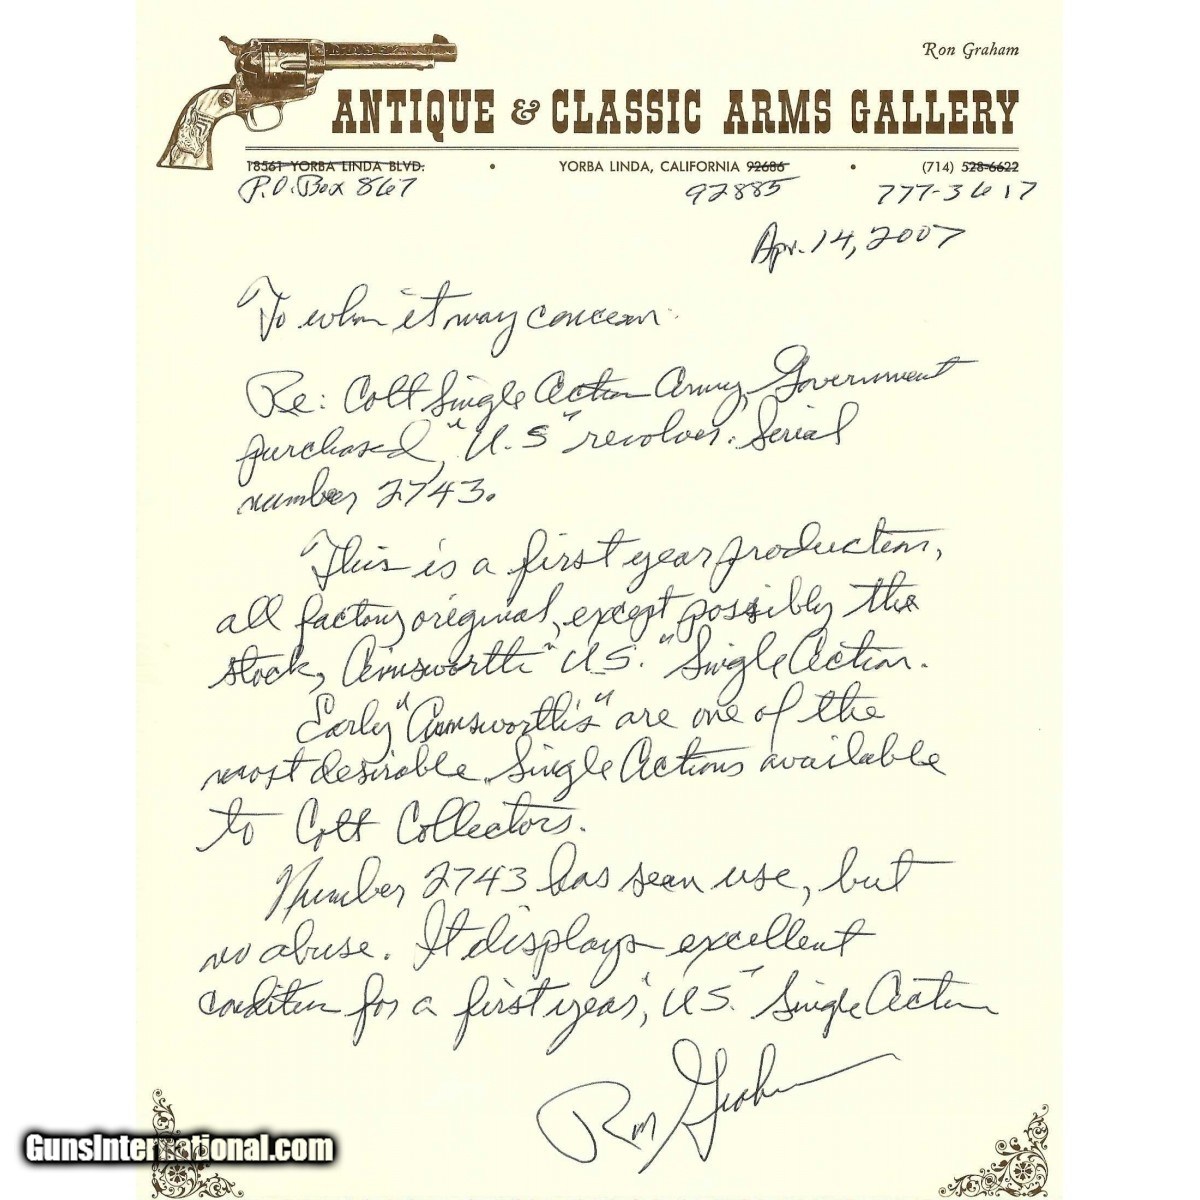 Ron Graham
ANTIQUE & CLASSIC ARMS GALLERY
18561 YORBA LINDA BLVD. • YORBA LINDA, CALIFORNIA 92686 • (714) 528-6622
P.O. Box 867 92885 777-3617
Apr. 14, 2007
To whom it may concern:
Re: Colt Single Action Army, Government
purchased, "U.S" revolver. Serial
number 2743.
This is a first year production,
all factory original, except possibly the
stock, Ainsworth "U.S." Single Action.
Early "Ainsworth's" are one of the
most desirable Single Actions available
to Colt Collectors.
Number 2743 has seen use, but
no abuse. It displays excellent
condition for a first year, "U.S." Single Action
Ron Graham
GunsInternational.com